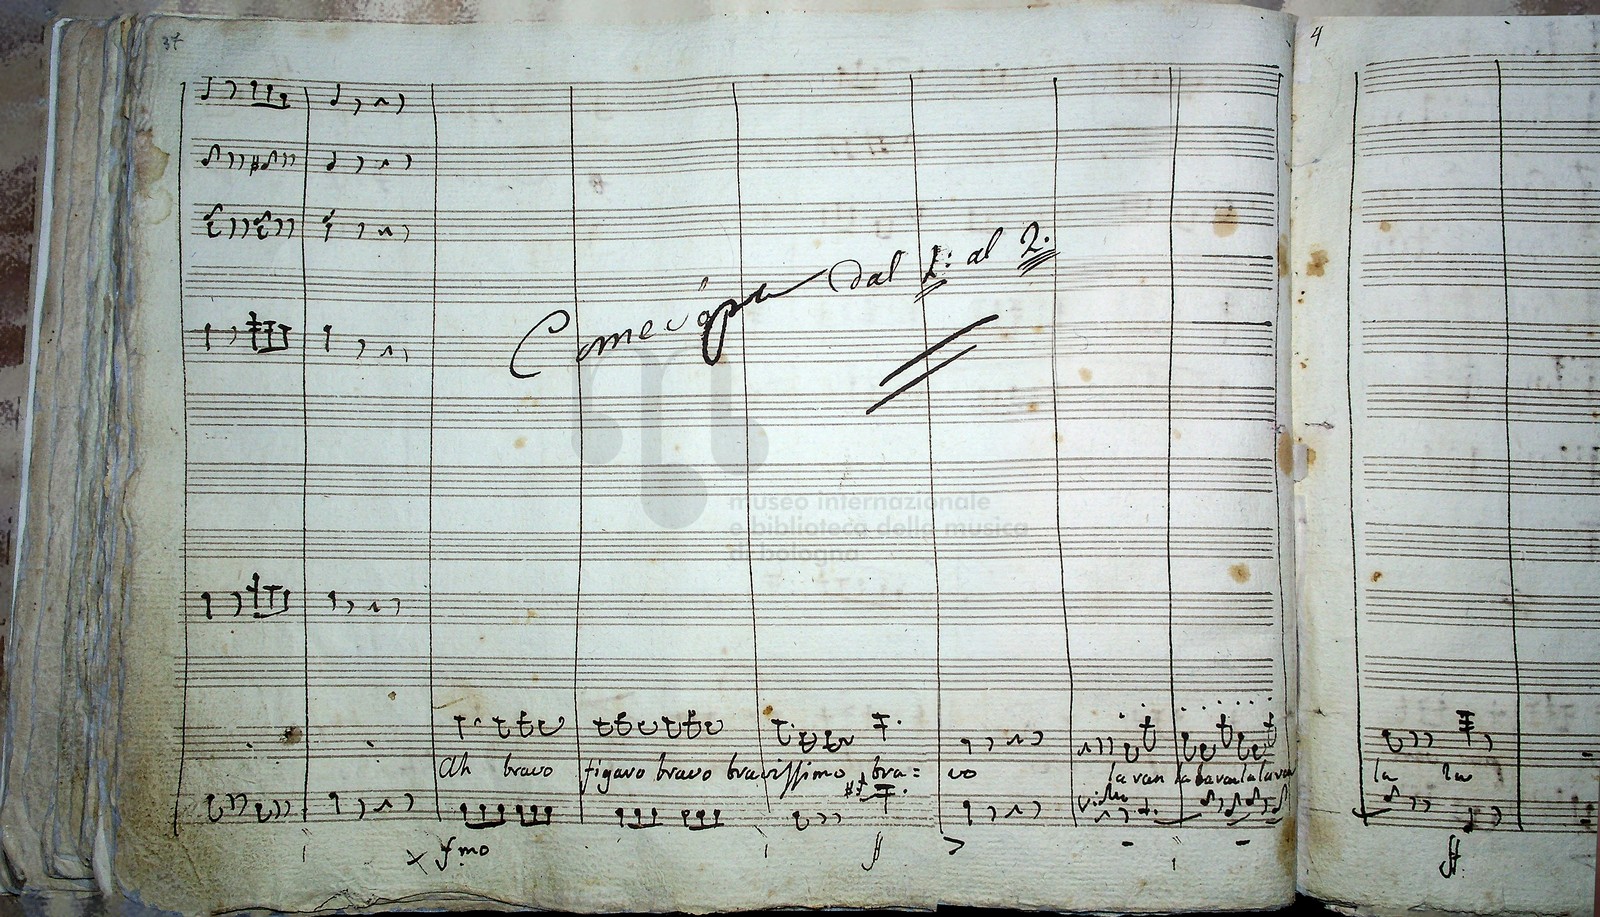 37
4
Come sopra Dal 1: al 2.
museo internazionale
e biblioteca della musica
di bologna
Ah bravo figaro bravo bravissimo bra= vo la ran la la ran la la ran
la la
fmo
ff
ff